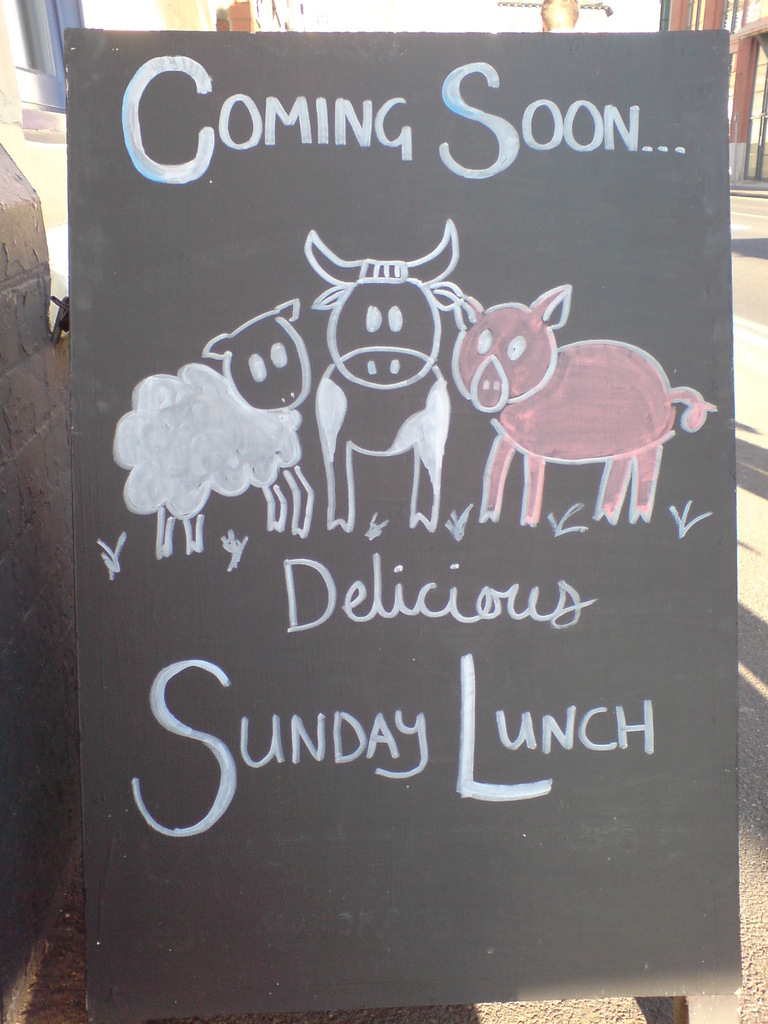 Coming Soon...
Delicious
Sunday Lunch